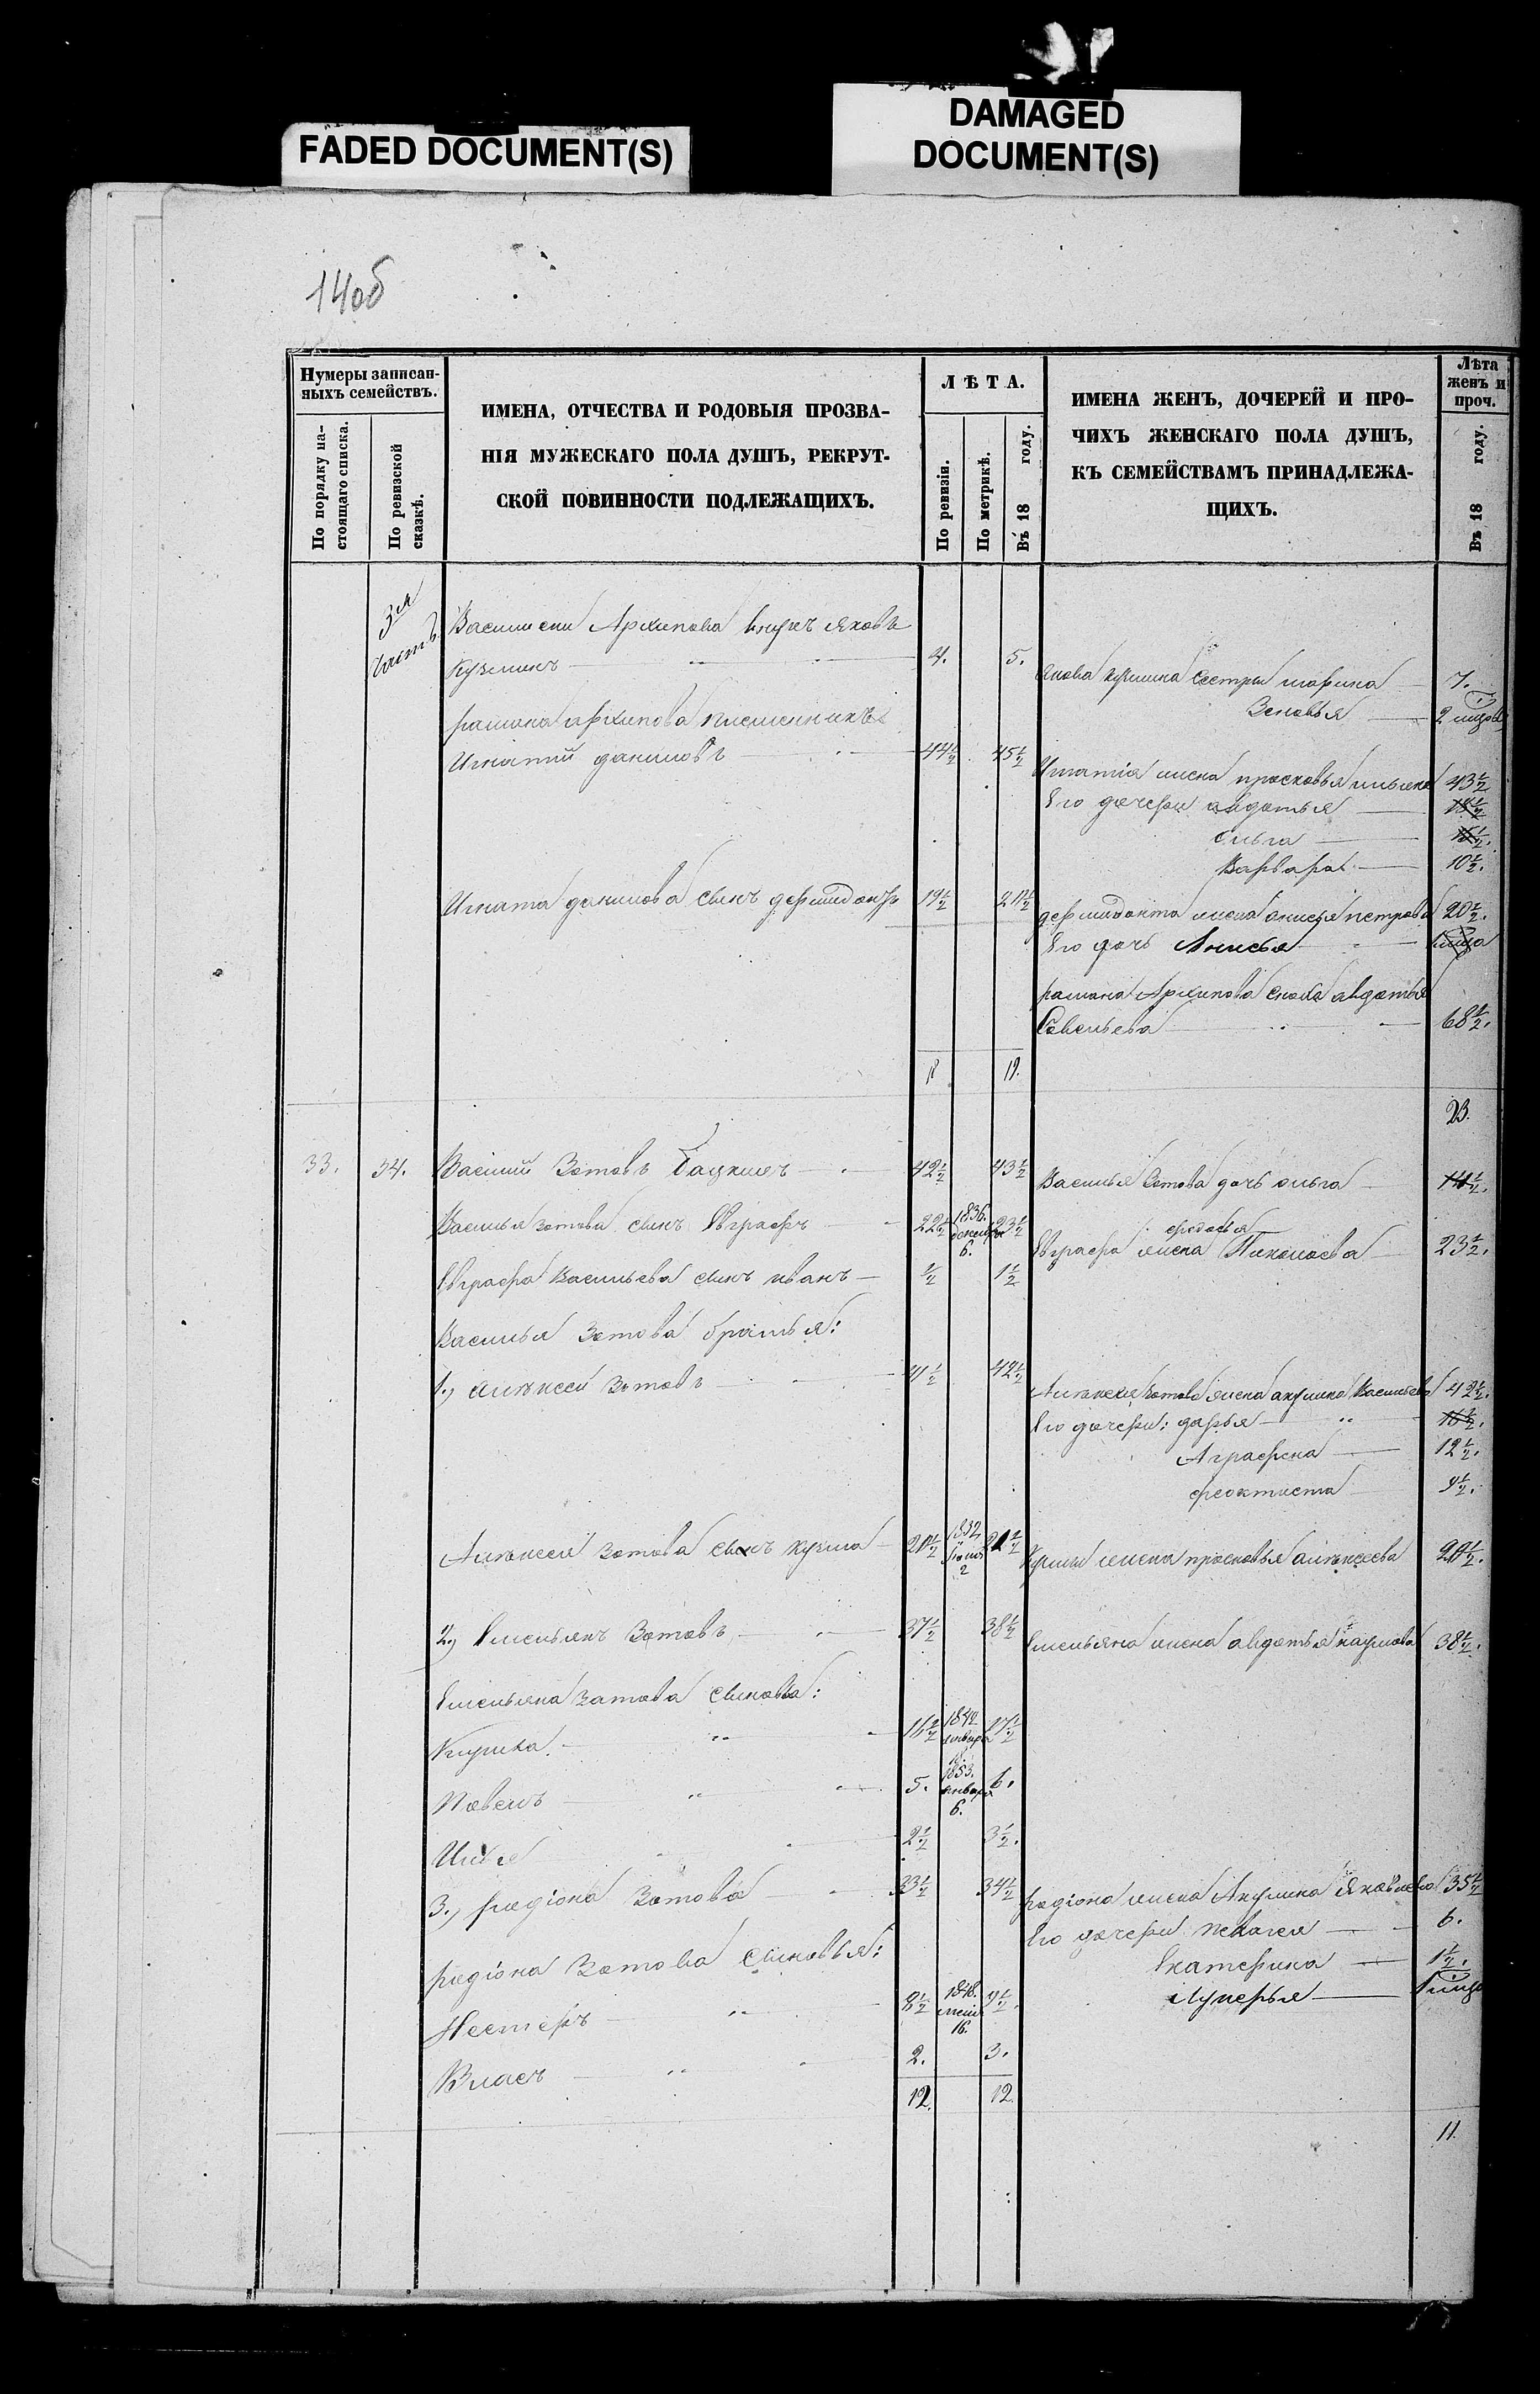 FADED DOCUMENT(S)
DAMAGED
DOCUMENT(S)
14об
Нумеры записан-
ныхъ семействъ.
По порядку на-
стоящаго списка.
По ревизской
сказкѣ.
ИМЕНА, ОТЧЕСТВА И РОДОВЫЯ ПРОЗВА-
НІЯ МУЖЕСКАГО ПОЛА ДУШЪ, РЕКРУТ-
СКОЙ ПОВИННОСТИ ПОДЛЕЖАЩИХЪ.
ЛѢТА.
По ревизіи.
По метрикѣ.
Въ 18 году.
ИМЕНА ЖЕНЪ, ДОЧЕРЕЙ И ПРО-
ЧИХЪ ЖЕНСКАГО ПОЛА ДУШЪ,
КЪ СЕМЕЙСТВАМЪ ПРИНАДЛЕЖА-
ЩИХЪ.
Лѣта
женъ и
проч.
Въ 18 году.
3я
часть
Архипова внукъ яковъ
Кузминъ 4. 5.
якова кузмина сестры марина 7.
Зеновья 2
рамана архипова племенникъ
Игнатий даниловъ 44½ 45½
Игнатія жена просковья 43½
Его дочери авдотья 18½
олга
Варвара 10½.
Игната данилова сынъ 19½
жена петрова 20½.
Его дочь Анисья
рамана Архипова сноха авдотья
Савельева 68½.
18 19.
23.
33. 34. Василий Зотовъ 42½ 43½
Василья Зотова дочь олга
Василья зотова сынъ Евграфъ 22½ 1836. декабря 6. 23½
федосья
Евграфа жена Николаева 23½.
Евграфа Васильева сынъ иванъ ½ 1½
Василья Зотова братья:
1.) алѣксей Зотовъ 41½ 42½
Алѣксея Зотова жена акулина Васильева 42½.
Его дочери: дарья 16½.
Аграфена 12½.
феоктиста 9½.
Алѣксея Зотова сынъ кузма 1832 2
Кузмы жена просковья алѣксеева 20½.
2.) Емельянъ Зотовъ 37½ 38½
Емельяна жена авдотья наумова 38½.
Емельяна Зотова сыновья:
16½ 1842 января 17½
Павелъ 5. 1853. января 6. 6.
Илья 2½ 3½.
3.) радіона Зотова 33½ 34½
радіона жена Акулина Яковлева 35½
Его дочери пелагея 6.
Екатерина 1½.
Лукерья
радіона Зотова сыновья:
Нестеръ 8½ 1848. 16. 9½.
Власъ 2. 3.
12. 12.
11.